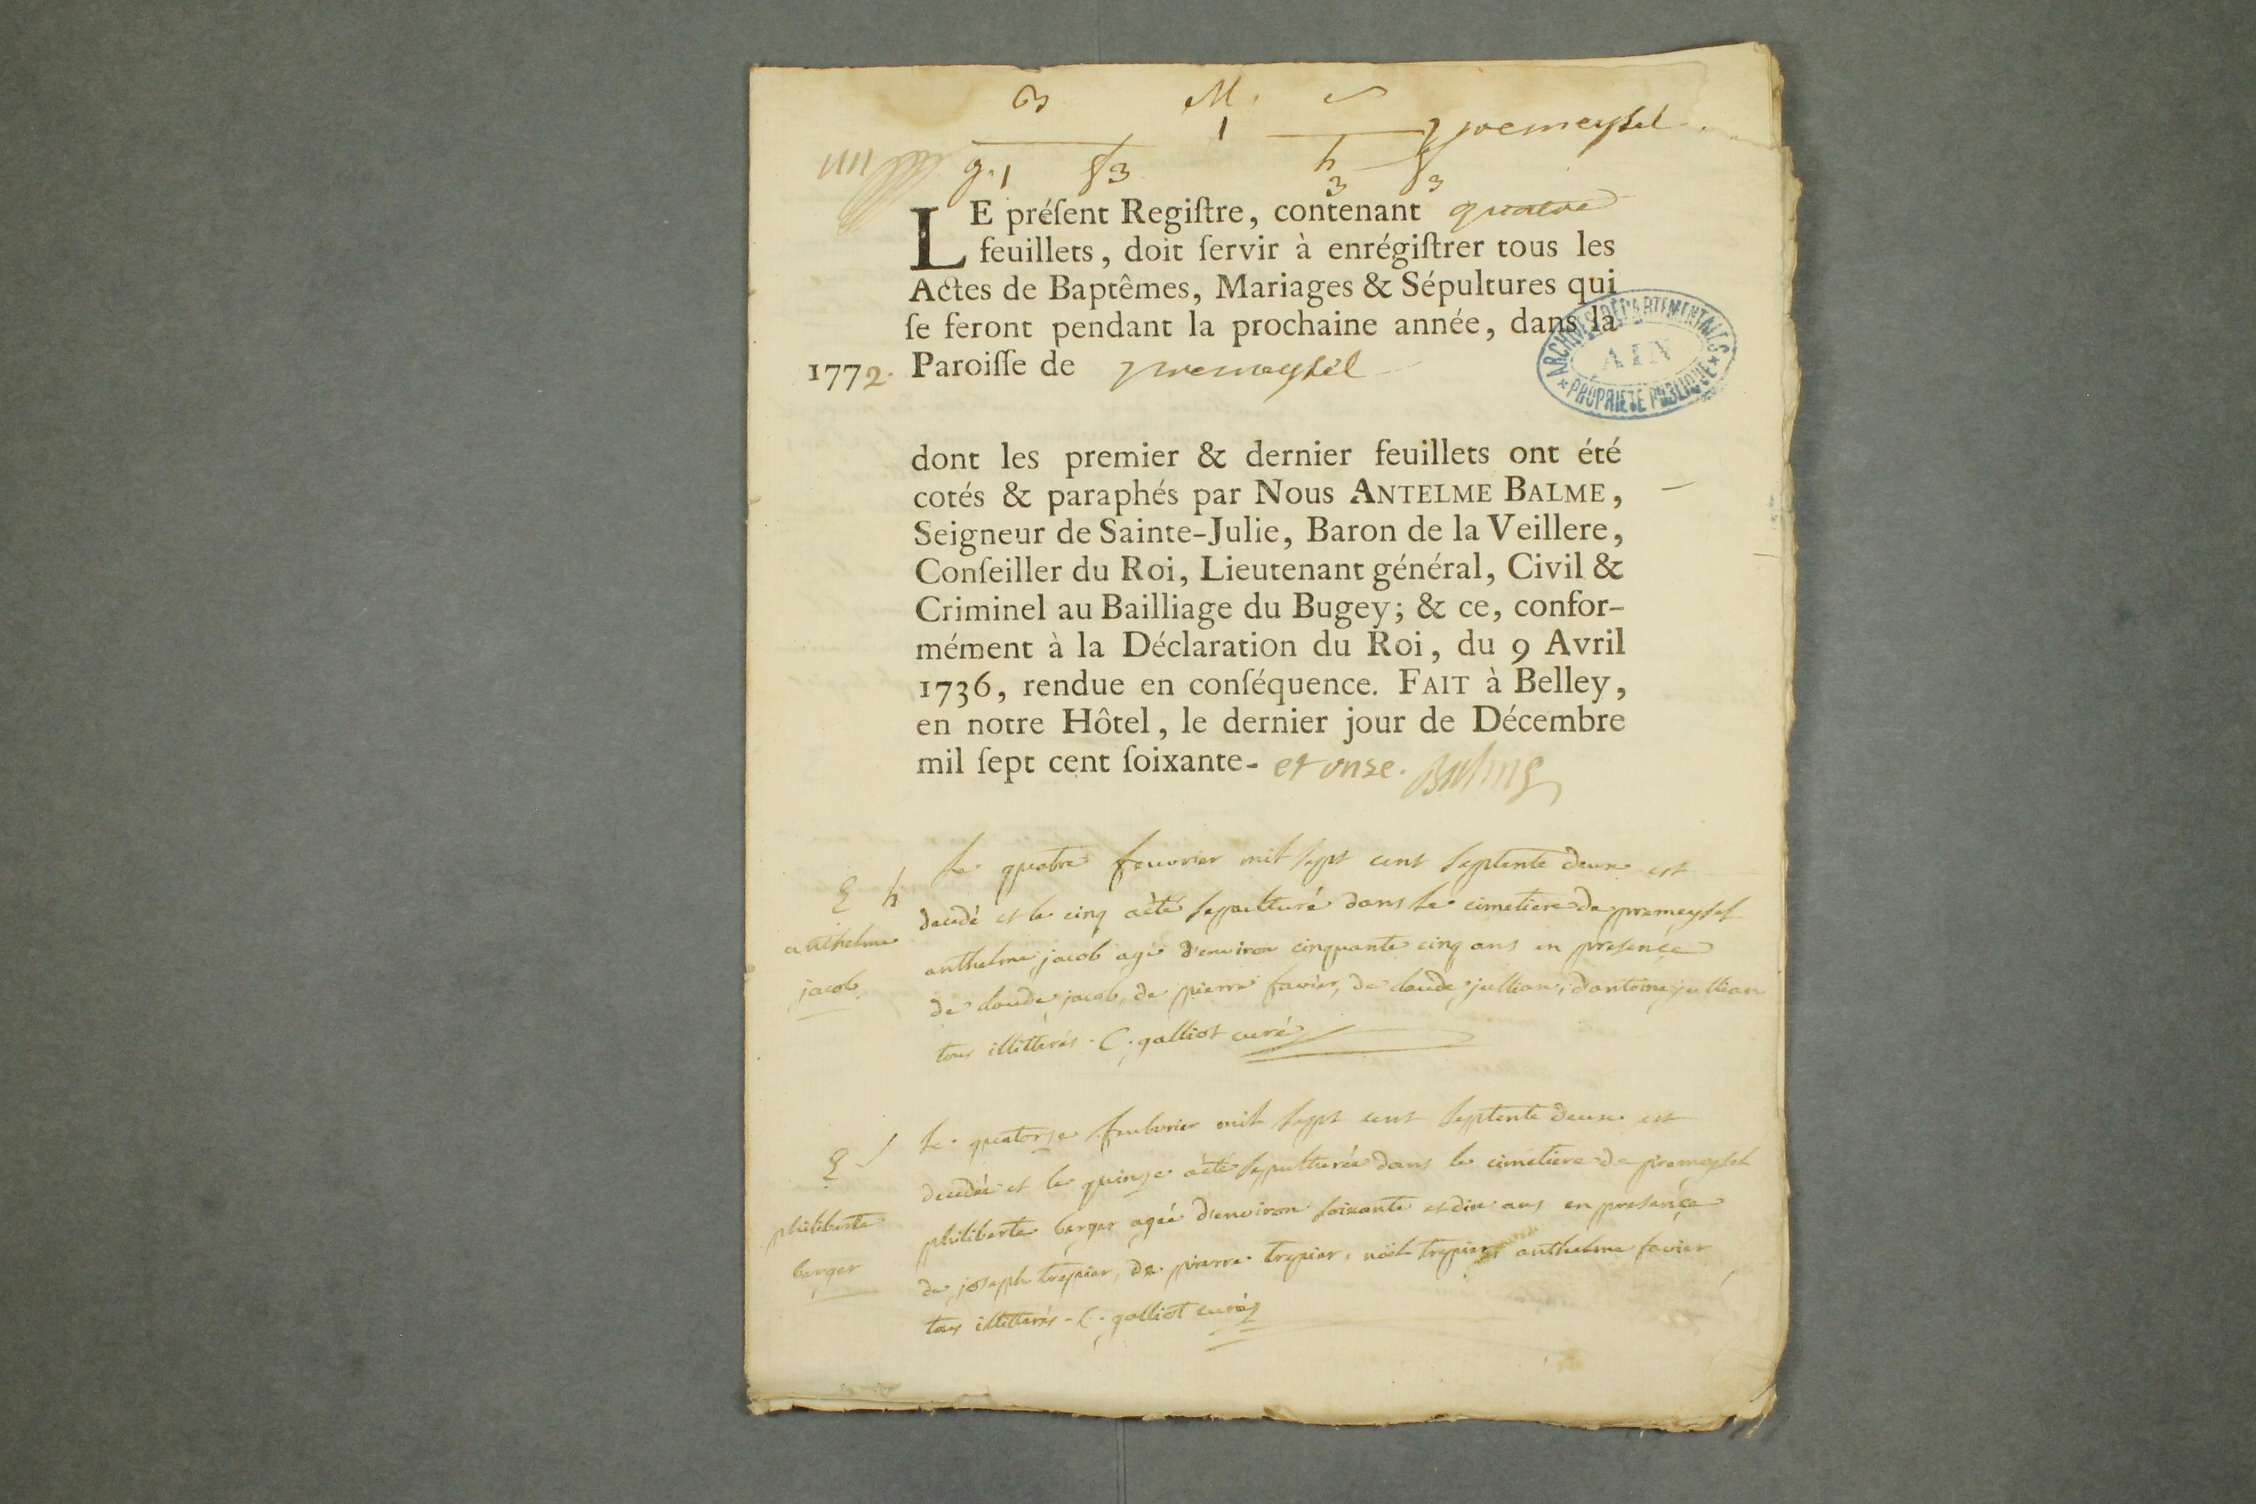 B M. S
1 premeysel
g. 1 f 3 h 3 f 3
LE préſent Regiſtre, contenant quatre
feuillets, doit ſervir à enrégiſtrer tous les
Actes de Baptêmes, Mariages & Sépultures qui
ſe feront pendant la prochaine année, dans la
1772. Paroiſſe de premeysel
ARCHIVES DÉPARTEMENTALES
AIN
* PROPRIÉTÉ PUBLIQUE *
dont les premier & dernier feuillets ont été
cotés & paraphés par Nous ANTELME BALME,
Seigneur de Sainte-Julie, Baron de la Veillere,
Conſeiller du Roi, Lieutenant général, Civil &
Criminel au Bailliage du Bugey; & ce, confor-
mément à la Déclaration du Roi, du 9 Avril
1736, rendue en conſéquence. FAIT à Belley,
en notre Hôtel, le dernier jour de Décembre
mil ſept cent ſoixante- et onze. Balme
h
anthelme
jacob
le quatre feuvrier mil sept cent septente deux est
decedé et le cinq aété sepulturé dans le cimetiere de premeysel
anthelme jacob agé d'environ cinquante cinq ans en presençe
de claude jacob, de pierre favier, de claude jullian, d'antoine jullian
tous illitterés. C. galliot curé
philiberte
berger
le quatorze feubvrier mil sept cent septente deux est
decedée et le quinze aété sepulturée dans le cimetiere de premeysel
philiberte berger agée d'environ soixante et dix ans en presençe
de joseph trepier, de pierre trepier, noël trepier, anthelme favier
tous illitterés. C. galliot curé